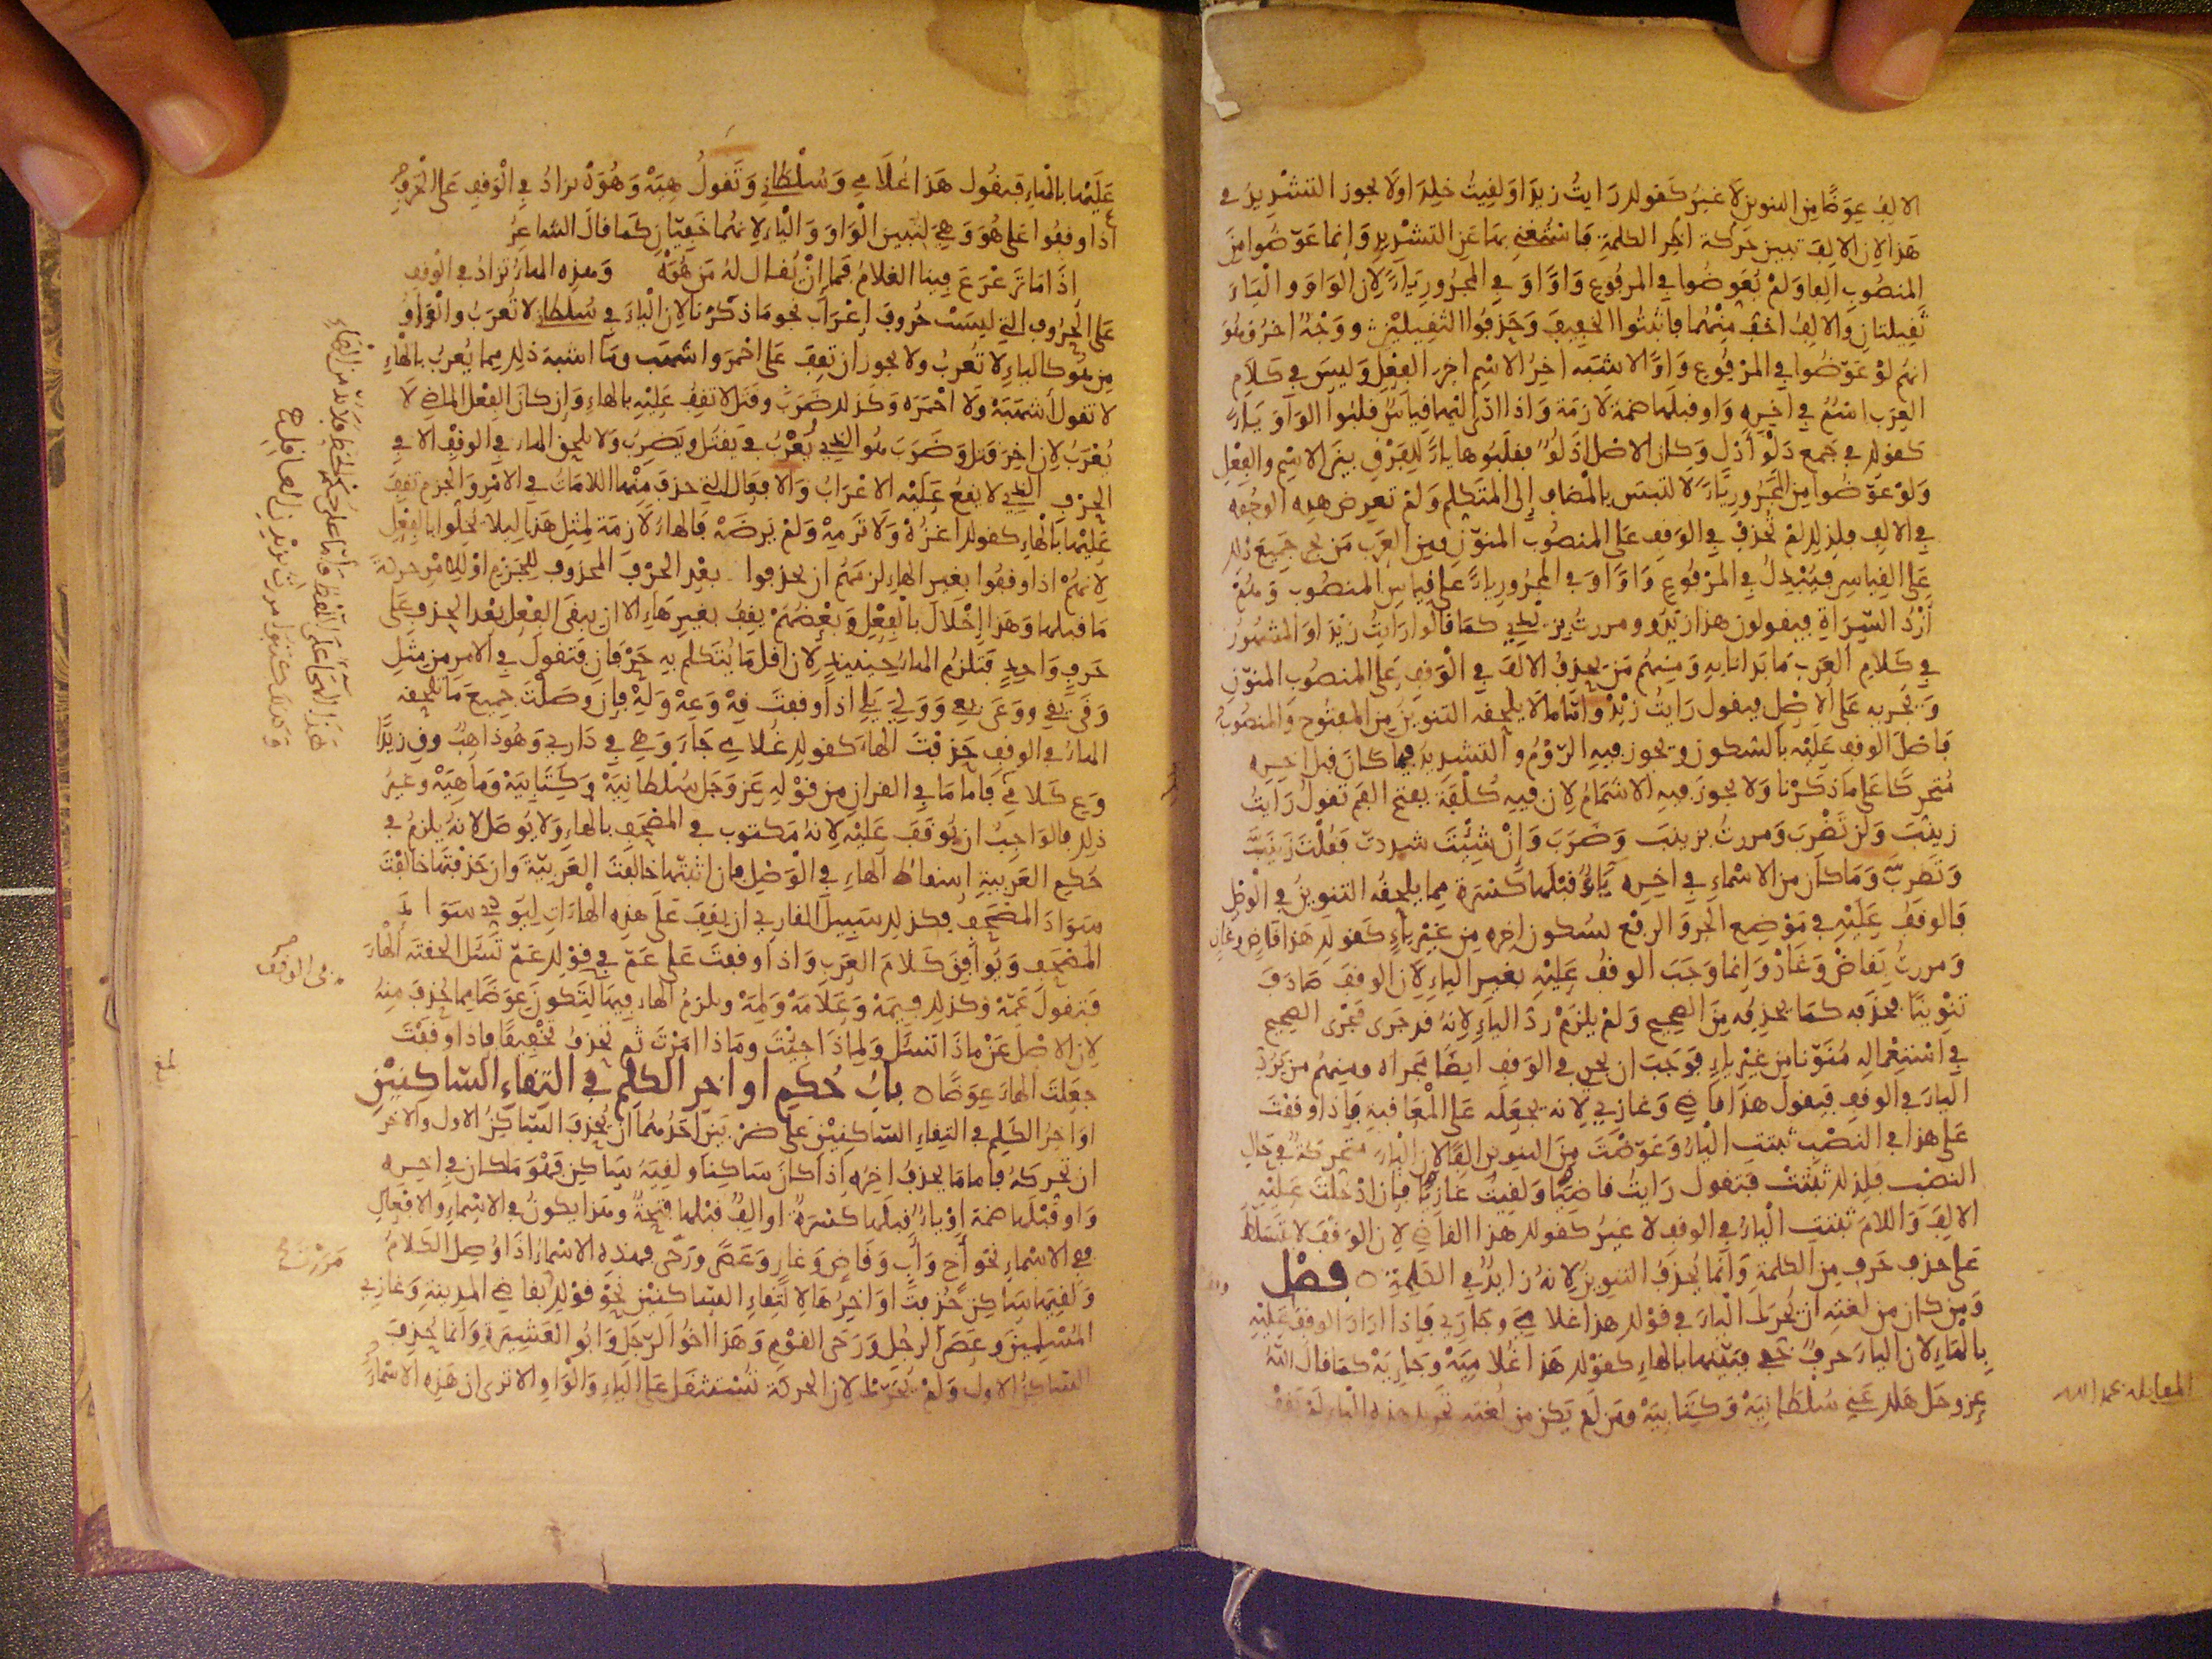 الالف عوضًا من التنوين لا غير كقولك رايت زيدا ولقيت خلدا ولا يجوز التشديد في
هذا لان الالف تبين حركة اخر الكلمة فاستغني بها عن التشديد وانما عوضوا من
المنصوب الفا ولم يعوضوا في المرفوع واوا وفي المجرور ياء لان الواو والياء
ثقيلتان والالف اخف منهما فاثبتوا الخفيف وحذفوا الثقيلين ووجه اخر وهو
انهم لو عوضوا في المرفوع واوا لاشبه اخر الاسم اخر الفعل وليس في كلام
العرب اسم في اخره واو قبلها ضمة لازمة واذا ادى اليها قياس قلبوا الواو ياء
كقولك في جمع دلو ادل وكان الاصل ادلو فقلبوها ياء للفرق بين الاسم والفعل
ولو عوضوا من المجرور ياء لالتبس بالمضاف الى المتكلم ولم تعرض هذه الوجوه
في الالف فلذلك لم تحذف في الوقف على المنصوب المنون ومن العرب من يجري جميع ذلك
على القياس فيبدل في المرفوع واوا وفي المجرور ياء على قياس المنصوب وهم
ازد السراة فيقولون هذا زيدو ومررت بزيدي كما قالوا رايت زيدا والمشهور
في كلام العرب ما بدانا به ومنهم من يحذف الالف في الوقف على المنصوب المنون
ويجريه على الاصل فيقول رايت زيد واما ما لا يلحقه التنوين من المفتوح والمنصوب
فاصل الوقف عليه بالسكون ويجوز فيه الروم والتشديد فيما كان قبل اخره
متحركا على ما ذكرنا ولا يجوز فيه الاشمام لان فيه كلفة بفتح الفم تقول رايت
زينب ولن تضرب ومررت بزينب وضرب وان شئت شددت فقلت زينب
وتضرب وما كان من الاسماء في اخره ياء قبلها كسرة مما يلحقه التنوين في الوصل
فالوقف عليه في موضع الجر والرفع بسكون اخره من غير ياء كقولك هذا قاض وغاز
ومررت بقاض وغاز وانما وجب الوقف عليه بغير الياء لان الوقف صادف
تنوينا يحذفه كما يحذفه من الصحيح ولم يلزم رد الياء لانه قد جرى مجرى الصحيح
في استعماله منونا من غير ياء فوجب ان يجري في الوقف ايضا مجراه ومنهم من يرد
الياء في الوقف فيقول هذا قاضي وغازي لانه يجعله على المعاقبة فاذا وقفت
على هذا في النصب ثبتت الياء وعوضت من التنوين الفا لان الياء متحركة في حال
النصب فلذلك ثبتت فتقول رايت قاضيا ولقيت غازيا فان ادخلت عليه
الالف واللام ثبتت الياء في الوقف لا غير كقولك هذا القاضي لان الوقف لا تسلط
على حذف حرف من الكلمة وانما يحذف التنوين لانه زايد في الكلمة ه فصل
ومن كان من لغته ان يحرك الياء في قولك هذا غلامي وجاري فاذا اراد الوقف عليه
بالهاء لان الياء حرف خفي فبينها بالهاء كقولك هذا غلاميه وجاريه كما قال الله
عز وجل هلك عني سلطانيه وكتابيه ومن لم يكن من لغته تحريك هذه الياء لم يقف
المقابله بحمد الله
عليها بالهاء فيقول هذا غلامي وسلطاني وتقول هيه وهوه يزاد في الوقف على الحرف
اذا وقفوا على هو وهي لتبين الواو والياء لانهما خفيان كما قال الشاعر
اذا ما ترعرع فينا الغلام فما ان يقال له من هوه وهذه الهاء تزاد في الوقف
على الحروف التي ليست حروف اعراب نحو ما ذكرنا لان الياء في سلطاني لا تعرب والواو
من هو كالياء لا تعرب ولا يجوز ان تقف على احمر واشهب وما اشبه ذلك مما يعرب بالهاء
لا تقول اشهبه ولا احمره وكذلك ضرب وقتل لا تقف عليه بالهاء وان كان الفعل الماضي لا
يعرب لان اخر قتل وضرب هو الذي يعرب في يقتل ويضرب ولا يلحق الهاء في الوقف الا في
الحرف الذي لا يقع عليه الاعراب والافعال التي حذف منها اللامات في الامر والجزم تقف
عليها بالهاء كقولك اغزه ولا ترمه ولم يرضه فالهاء لازمة لمثل هذا ليلا يخلوا بالفعل
لانهم اذا وقفوا بغير الهاء لزمهم ان يحذفوا بعد الحرف المحذوف للجزم او للامر حركة
ما قبلها وهذا اخلال بالفعل وبعضهم يقف بغير هاء الا ان يبقى الفعل بعد الحذف على
حرف واحد فتلزم الهاء حينيذ لان اقل ما يتكلم به حرفان فتقول في الامر من مثل
وقى يقي ووعى يعي وولي يلي اذا وقفت قه وعه وله فان وصلت جميع ما تلحقه
الهاء في الوقف حذفت الهاء كقولك غلامي جاء وهي في داري وهو ذاهب وق زيدا
وع كلامي فاما ما في القران من قوله عز وجل سلطانيه وكتابيه وما هيه وغير
ذلك فالواجب ان يوقف عليه لانه مكتوب في المصحف بالهاء ولا يوصل لانه يلزم في
حكم العربية اسقاط الهاء في الوصل فان اثبتها خالفت العربية وان حذفتها خالفت
سواد المصحف فكذلك سبيل القاري ان يقف على هذه الهاءات ليودي سواد
المصحف ويوافق كلام العرب واذا وقفت على عم في قولك عم تسل الحقته الهاء
فتقول عمه وكذلك فيمه وعلامه ولمه ويلزم الهاء فيها لتكون عوضا مما حذف منه
لان الاصل عن ماذا تسل ولماذا جيت وماذا امرت ثم تحذف تخفيفا فاذا وقفت
جعلت الهاء عوضا ه باب حكم اواخر الكلم في التقاء الساكنين
اواخر الكلم في التقاء الساكنين على ضربين احدهما ان يحذف الساكن الاول والاخر
ان تحركه فاما ما يحذف اخره اذا كان ساكنا ولقيه ساكن فهو ما كان في اخره
واو قبلها ضمة او ياء قبلها كسرة او الف قبلها فتحة وهذا يكون في الاسماء والافعال
ففي الاسماء نحو اخ واب وقاض وغاز وعصى ورحى فهذه الاسماء اذا وصل الكلام
ولقيها ساكن حذفت اواخرها لالتقاء الساكنين نحو قولك قاضي المدينة وغازي
المسلمين وعصى الرجل ورحى القوم وهذا اخو الرجل وابو العشيرة وانما يحذف
الساكن الاول ولم يحرك لان الحركة تستثقل على الياء والواو الا ترى ان هذه الاسماء